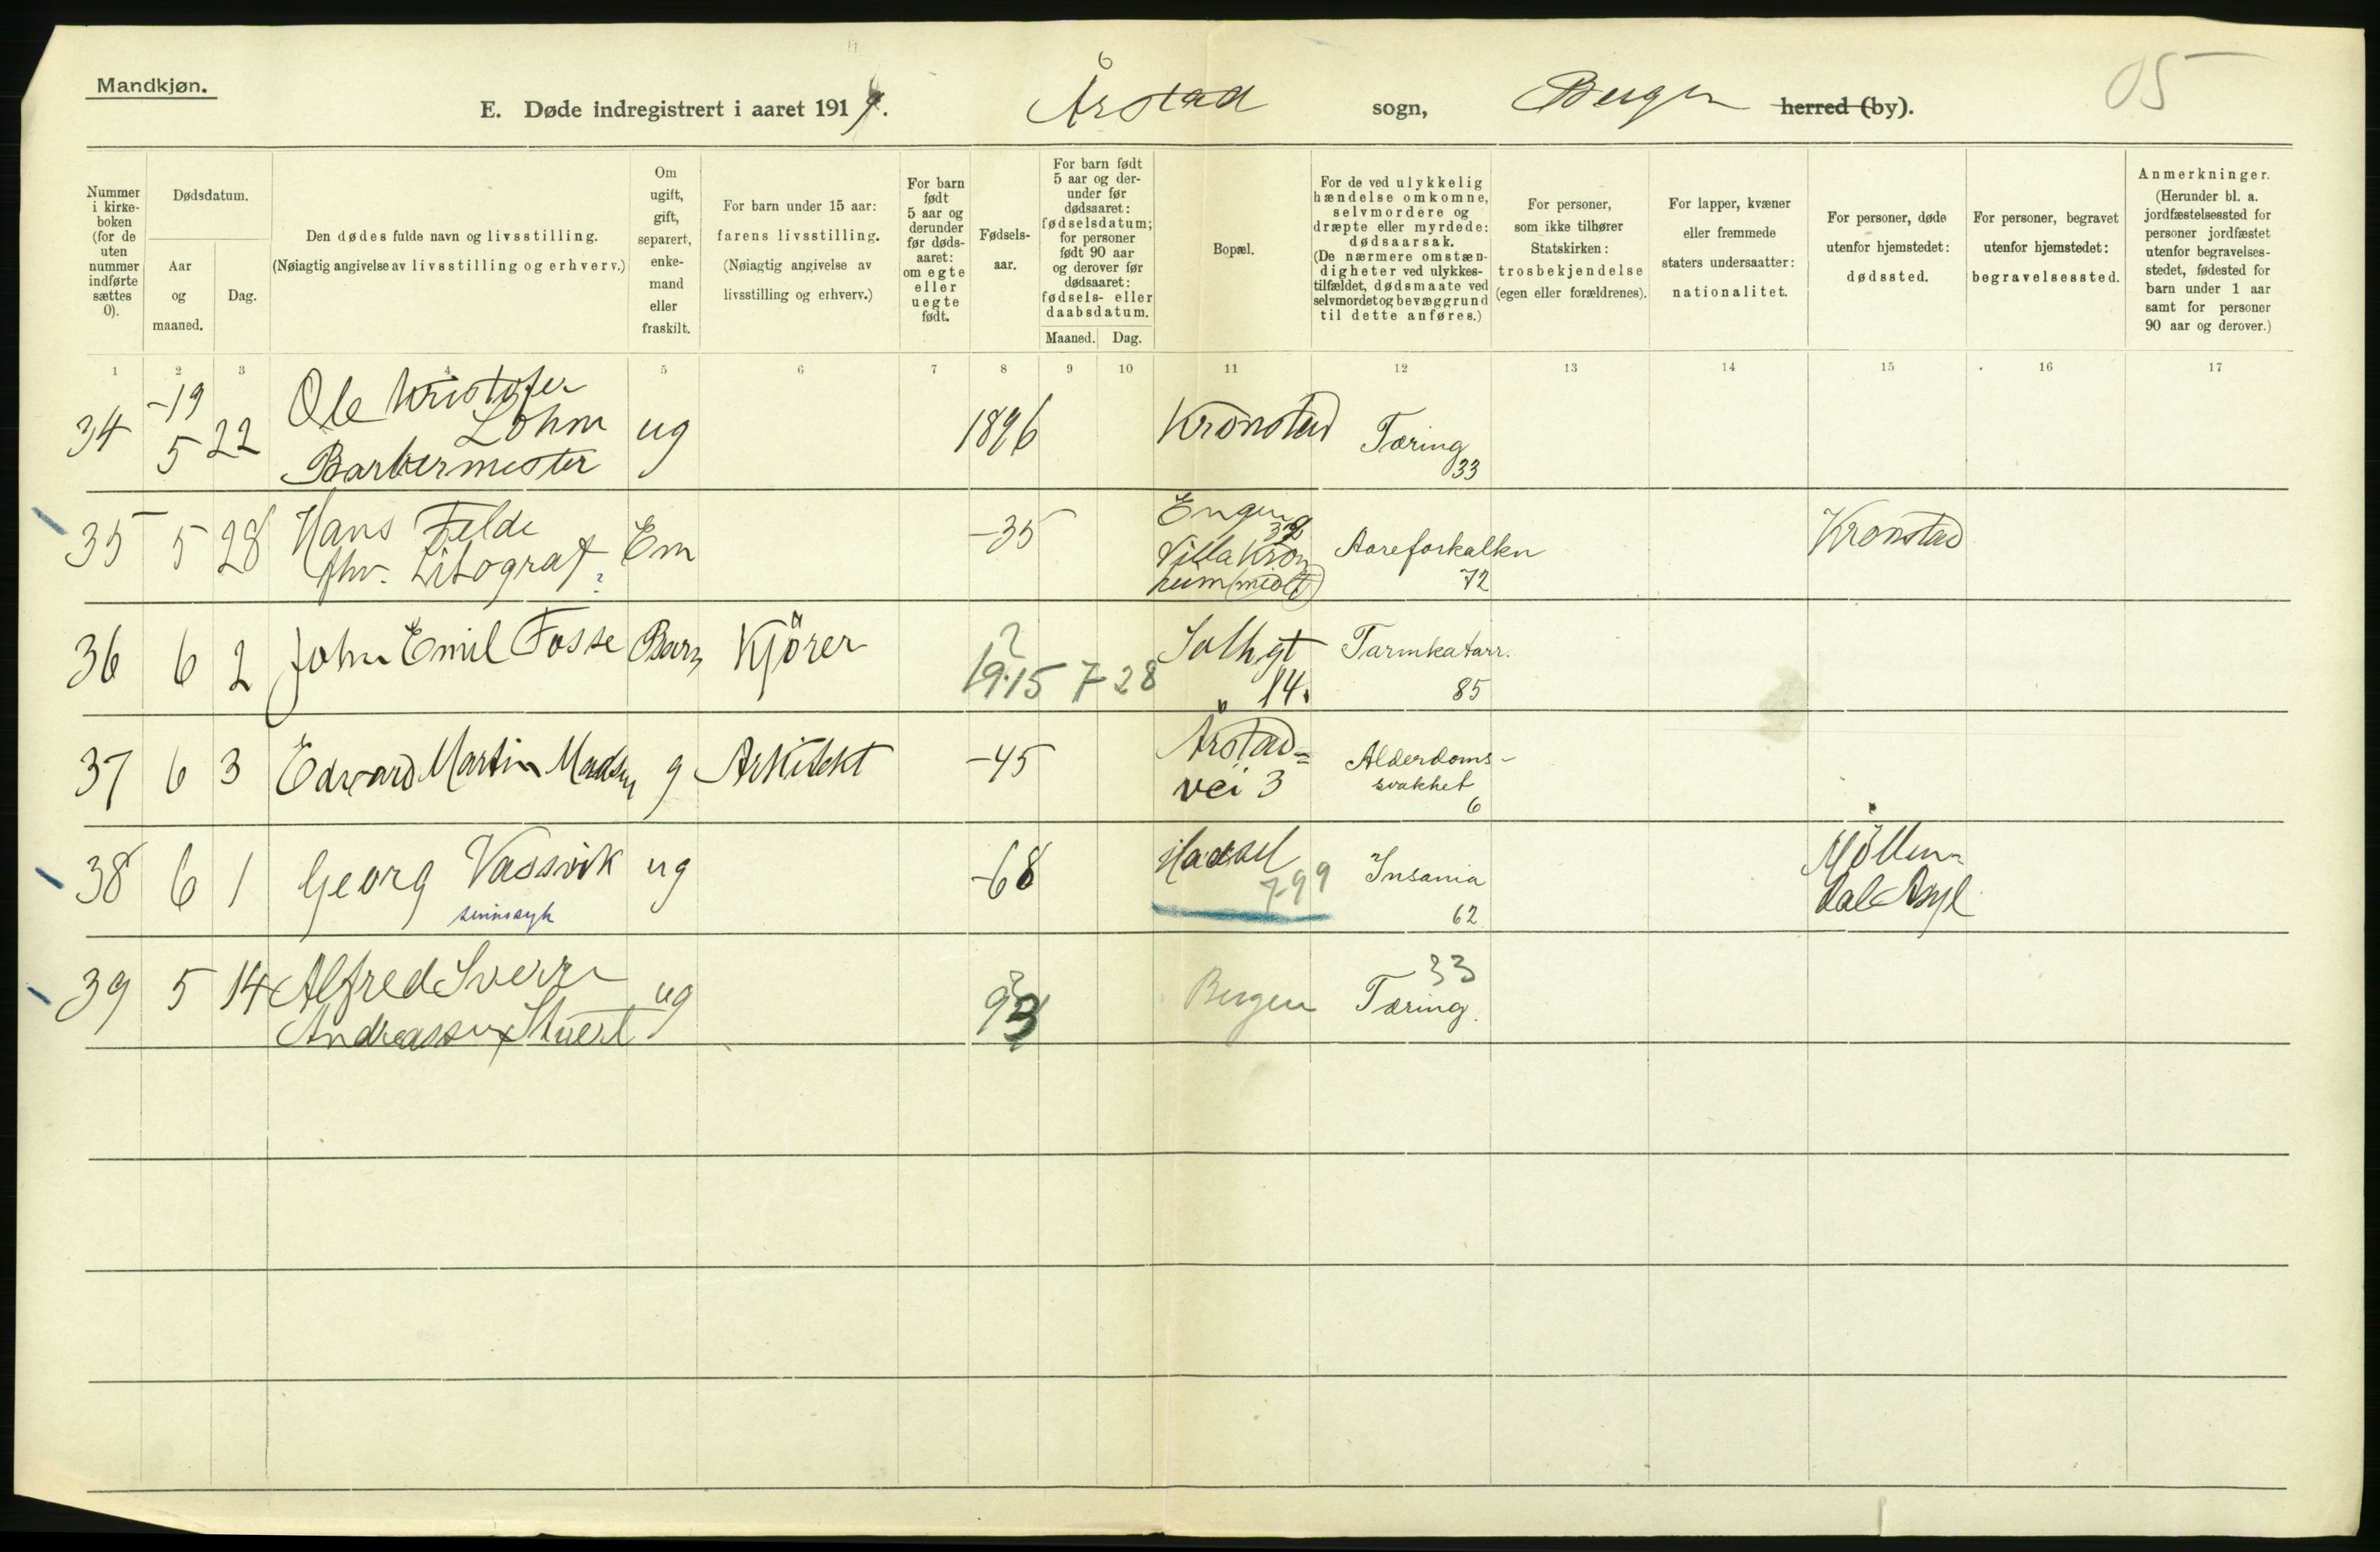 Mandkjøn.
E. Døde indregistrert i aaret 1919. Årstad sogn, Bergen herred (by). 05
Nummer i kirkeboken (for de uten nummer indførte sættes 0).
Dødsdatum.
Aar og maaned.
Dag.
Den dødes fulde navn og livsstilling.
(Nøiagtig angivelse av livsstilling og erhverv.)
Om ugift, gift, separert, enkemand eller fraskilt.
For barn under 15 aar: farens livsstilling.
(Nøiagtig angivelse av livsstilling og erhverv.)
For barn født 5 aar og derunder før dødsaaret: om egte eller uegte født.
Fødselsaar.
For barn født 5 aar og derunder før dødsaaret: fødselsdatum; for personer født 90 aar og derover før dødsaaret: fødsels- eller daabsdatum.
Maaned. Dag.
Bopæl.
For de ved ulykkelig hændelse omkomne, selvmordere og dræpte eller myrdede: dødsaarsak.
(De nærmere omstændigheter ved ulykkestilfældet, dødsmaate ved selvmordet og bevæggrund til dette anføres.)
For personer, som ikke tilhører Statskirken: trosbekjendelse (egen eller forældrenes).
For lapper, kvæner eller fremmede staters undersaatter: nationalitet.
For personer, døde utenfor hjemstedet: dødssted.
For personer, begravet utenfor hjemstedet: begravelsessted.
Anmerkninger.
(Herunder bl. a. jordfæstelsessted for personer jordfæstet utenfor begravelsesstedet, fødested for barn under 1 aar samt for personer 90 aar og derover.)
1 2 3 4 5 6 7 8 9 10 11 12 13 14 15 16 17
34 -19 5 22 Ole Kristofer Lohm Barbermester ug 1896 Kronstad Tæring 33
35 5 28 Hans Felde fhv. Litograf ? Em -35 Engen 32 Villa Kronheim (midlt) Aareforkalkn 72 Kronstad
36 6 2 John Emil Fosse Barn Kjörer ? 1915 7 28 Solh.gt 14. Tarmkatarr. 85
37 6 3 Edvard Martin Madsen g Arkitekt -45 Årstad= vei 3 Alderdoms- svakhet 6
38 6 1 Georg Vassvik sinnssyk ug -68 Hadsel 799 Insania 62 Möllendal Asyl
39 5 14 Alfred Sverre Andreassen Stuert ug 93 Bergen 33 Tæring.